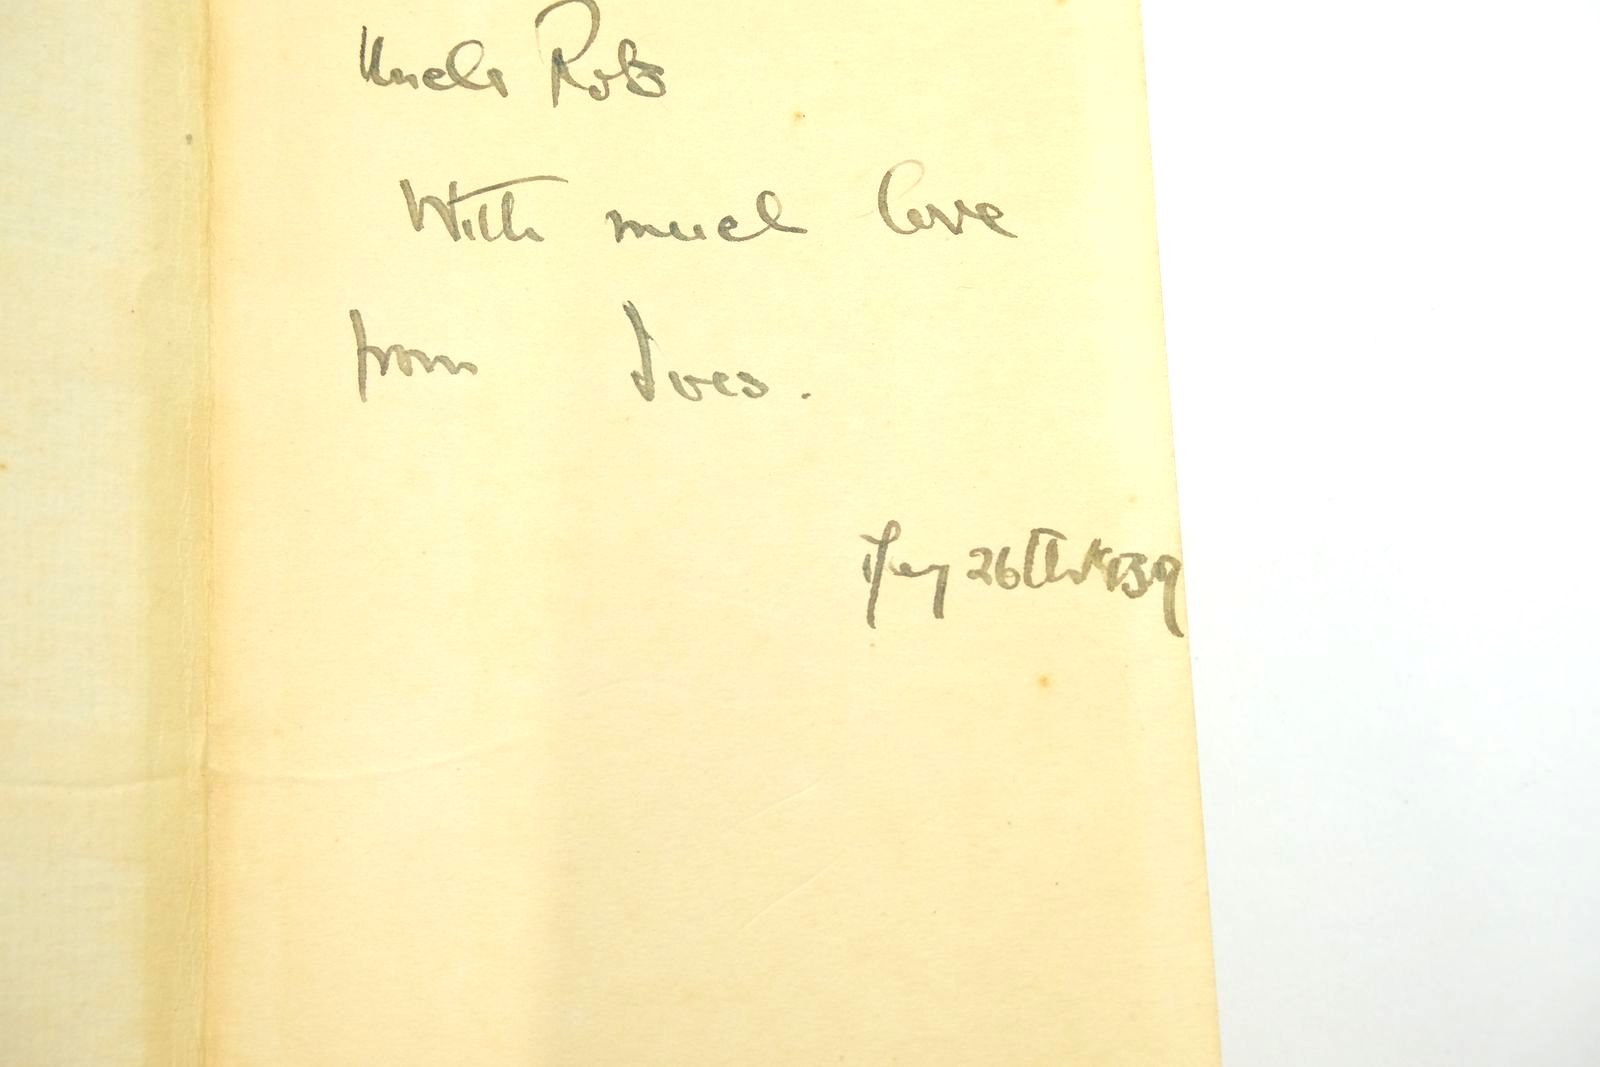 Uncle Rob
With much love
from Ives.
May 26th 1939